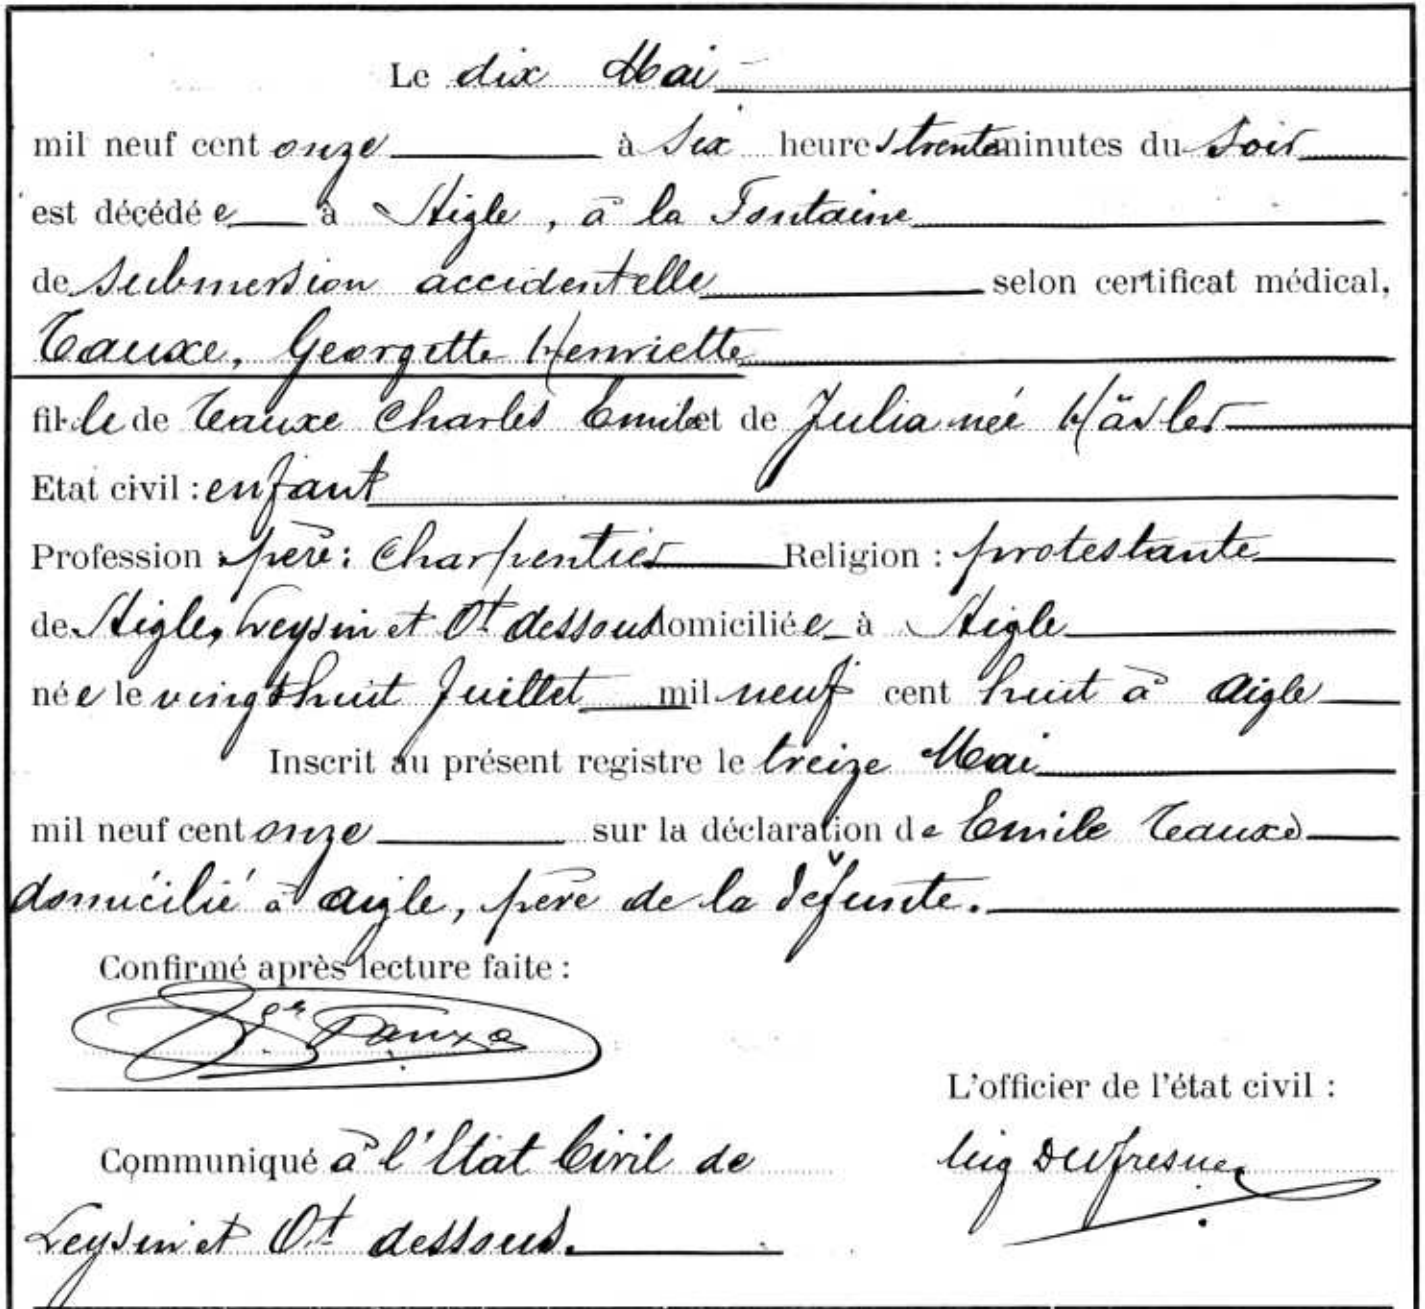 Le dix Mai
mil neuf cent onze à six heures trente minutes du soir
est décédée à Aigle, à la Fontaine
de submersion accidentelle selon certificat médical,
Tauxe, Georgette Henriette
fille de Tauxe Charles Emile et de Julia née Häsler
Etat civil : enfant
Profession : père : charpentier Religion : protestante
de Aigle, Leysin et Ot dessous domiciliée à Aigle
née le vingt huit Juillet mil neuf cent huit à Aigle
Inscrit au présent registre le treize Mai
mil neuf cent onze sur la déclaration de Emile Tauxe
domicilié à Aigle, père de la défunte.
Confirmé après lecture faite :
Tauxe
L'officier de l'état civil :
Communiqué à l'Etat Civil de
Dufresne
Leysin et Ot dessous.